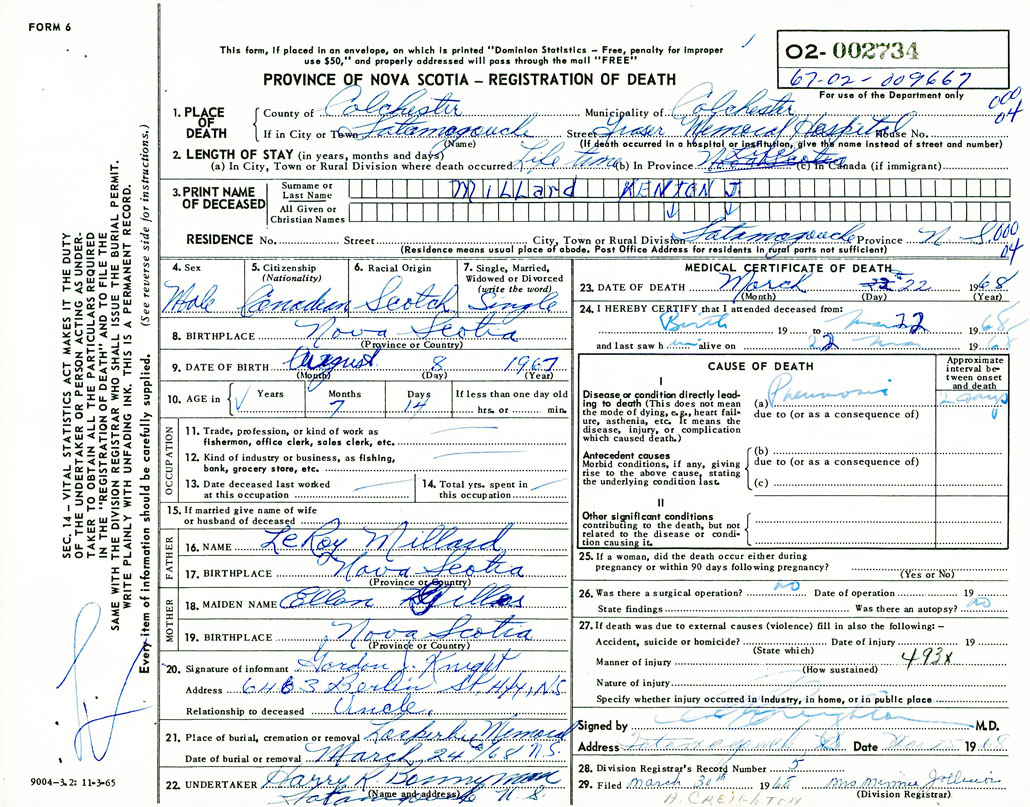 FORM 6
This form, if placed in an envelope, on which is printed "Dominion Statistics – Free, penalty for improper
use $50," and properly addressed will pass through the mail "FREE"
O2- 002734
67-02-009667
For use of the Department only
PROVINCE OF NOVA SCOTIA – REGISTRATION OF DEATH
000
04
1. PLACE OF DEATH
County of Colchester Municipality of Colchester
If in City or Town Tatamagouche Street Fraser Memorial Hospital House No.
(Name) (If death occurred in a hospital or institution, give the name instead of street and number)
2. LENGTH OF STAY (in years, months and days)
(a) In City, Town or Rural Division where death occurred Life time (b) In Province Life Nova Scotia (c) In Canada (if immigrant)
3. PRINT NAME OF DECEASED
Surname or Last Name Millard KENTON J
All Given or Christian Names
RESIDENCE No. Street City, Town or Rural Division Tatamagouche Province N S.
000
04
(Residence means usual place of abode. Post Office Address for residents in rural parts not sufficient)
4. Sex Male
5. Citizenship (Nationality) Canadian
6. Racial Origin Scotch
7. Single, Married, Widowed or Divorced (write the word) Single
8. BIRTHPLACE Nova Scotia
(Province or Country)
9. DATE OF BIRTH August 8 1967
(Month) (Day) (Year)
10. AGE in Years Months 7 Days 14 If less than one day old hrs. or min.
OCCUPATION
11. Trade, profession, or kind of work as
fisherman, office clerk, sales clerk, etc.
12. Kind of industry or business, as fishing,
bank, grocery store, etc.
13. Date deceased last worked
at this occupation
14. Total yrs. spent in
this occupation
15. If married give name of wife
or husband of deceased
FATHER
16. NAME LeRoy Millard
17. BIRTHPLACE Nova Scotia
(Province or Country)
MOTHER
18. MAIDEN NAME Ellen
19. BIRTHPLACE Nova Scotia
(Province or Country)
20. Signature of informant Gordon J. Knight
Address 6463 Berlin St Hfx, NS
Relationship to deceased Uncle.
21. Place of burial, cremation or removal Memorial
Date of burial or removal March 24 "68 N.S.
22. UNDERTAKER Harry K. Bonnyman
(Name and address) Tatamagouche N.S.
MEDICAL CERTIFICATE OF DEATH
23. DATE OF DEATH March 22 1968
(Month) (Day) (Year)
24. I HEREBY CERTIFY that I attended deceased from:
Birth 19 to Mar 22 1968
and last saw him alive on 22 Mar 1968
CAUSE OF DEATH
Approximate interval between onset and death
I
Disease or condition directly leading to death (This does not mean the mode of dying, e.g., heart failure, asthenia, etc. It means the disease, injury, or complication which caused death.)
(a) Pneumonia 2 days
due to (or as a consequence of)
Antecedent causes
Morbid conditions, if any, giving rise to the above cause, stating the underlying condition last.
(b)
due to (or as a consequence of)
(c)
II
Other significant conditions
contributing to the death, but not related to the disease or condition causing it.
25. If a woman, did the death occur either during
pregnancy or within 90 days following pregnancy?
(Yes or No)
26. Was there a surgical operation? no Date of operation 19
State findings Was there an autopsy? no
27. If death was due to external causes (violence) fill in also the following: –
Accident, suicide or homicide? Date of injury 19
(State which)
Manner of injury 493X
(How sustained)
Nature of injury
Specify whether injury occurred in industry, in home, or in public place
Signed by Creighton M.D.
Address Tatamagouche NS Date Mar 1968
28. Division Registrar's Record Number 5
29. Filed March 30th 1968 Mrs Minnie
(Division Registrar)
H. CREIGHTON
SEC. 14 – VITAL STATISTICS ACT MAKES IT THE DUTY
OF THE UNDERTAKER OR PERSON ACTING AS UNDER-
TAKER TO OBTAIN ALL THE PARTICULARS REQUIRED
IN THE "REGISTRATION OF DEATH" AND TO FILE THE
SAME WITH THE DIVISION REGISTRAR WHO SHALL ISSUE THE BURIAL PERMIT.
WRITE PLAINLY WITH UNFADING INK. THIS IS A PERMANENT RECORD.
Every item of information should be carefully supplied. (See reverse side for instructions.)
9004–3.2: 11-3-65